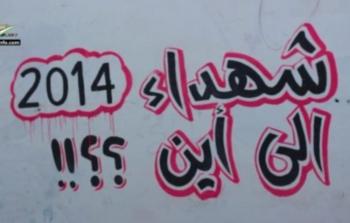 شهداء 2014
الى أين ؟؟!!